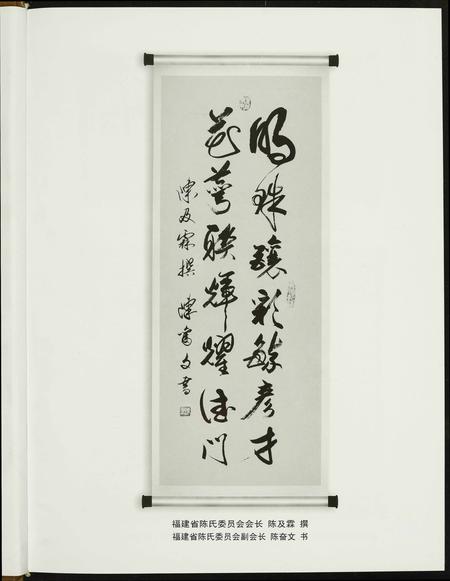 明珠釀彩毓彦才
花萼聯輝耀德門
陳及霖撰 陳奮文書
福建省陈氏委员会会长 陈及霖 撰
福建省陈氏委员会副会长 陈奋文 书